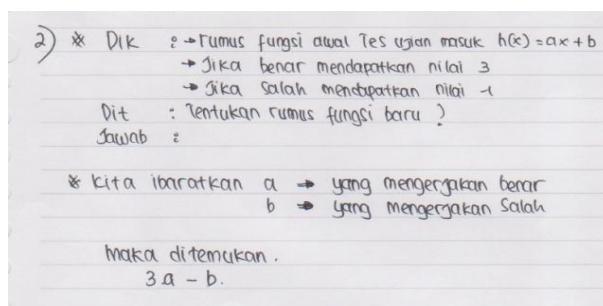 2) * Dik : → rumus fungsi awal Tes ujian masuk h(x) = ax + b
→ Jika benar mendapatkan nilai 3
→ Jika salah mendapatkan nilai -1
Dit : Tentukan rumus fungsi baru ?
Jawab :
* Kita ibaratkan a → yang mengerjakan benar
b → yang mengerjakan salah
maka ditemukan.
3a - b.